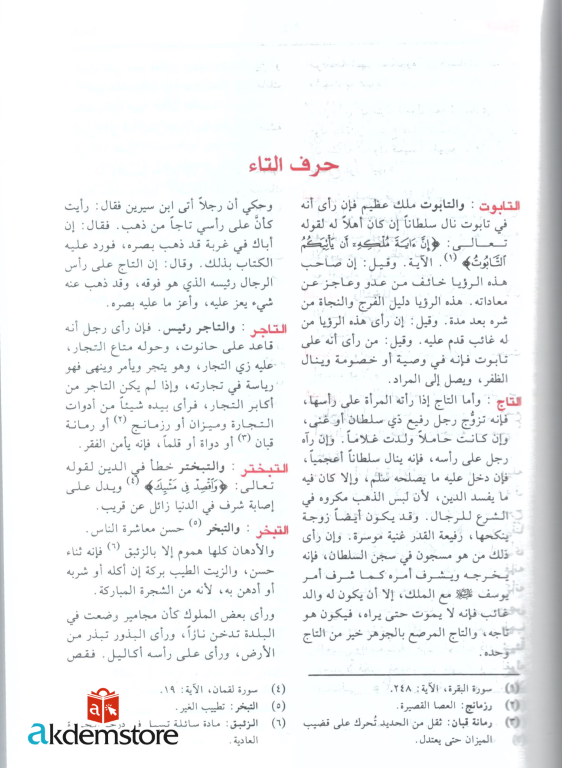 حرف التاء
التابوت : والتابوت ملك عظيم فإن رأى أنه
في تابوت نال سلطاناً إن كان أهلاً له لقوله
تعالى: ﴿إِنَّ ءَايَةَ مُلْكِهِۦٓ أَن يَأْتِيَكُمُ
ٱلتَّابُوتُ﴾ (١). الآية. وقيل: إن صاحب
هذه الرؤيا خائف من عدو وعاجز عن
معاداته. هذه الرؤيا دليل الفرج والنجاة من
شره بعد مدة. وقيل: إن رأى هذه الرؤيا من
له غائب قدم عليه. وقيل: من رأى أنه على
تابوت فإنه في وصية أو خصومة وينال
الظفر، ويصل إلى المراد.
التاج : وأما التاج إذا رأته المرأة على رأسها،
فإنه تزوُّج رجل رفيع ذي سلطان أو غنى،
وإن كانت حاملاً ولدت غلاماً. وإن رآه
رجل على رأسه، فإنه ينال سلطاناً أعجمياً،
فإن دخل عليه ما يصلحه سَلِم، وإلا كان فيه
ما يفسد الدين، لأن لبس الذهب مكروه في
الشرع للرجال. وقد يكون أيضاً زوجة
ينكحها، رفيعة القدر غنية موسرة. وإن رأى
ذلك من هو مسجون في سجن السلطان، فإنه
يخرجه ويشرف أمره كما شرف أمر
يوسف ﷺ مع الملك، إلا أن يكون له والد
غائب فإنه لا يموت حتى يراه، فيكون هو
تاجه، والتاج المرصع بالجوهر خير من التاج
وحده.
(١) سورة البقرة، الآية: ٢٤٨.
(٢) رزمانج: العصا القصيرة.
(٣) رمانة قبان: ثقل من الحديد تُحرك على قضيب
الميزان حتى يعتدل.
وحكي أن رجلاً أتى ابن سيرين فقال: رأيت
كأنَّ على رأسي تاجاً من ذهب. فقال: إن
أباك في غربة قد ذهب بصره، فورد عليه
الكتاب بذلك. وقال: إن التاج على رأس
الرجال رئيسه الذي هو فوقه، وقد ذهب عنه
شيء يعز عليه، وأعز ما عليه بصره.
التاجر : والتاجر رئيس. فإن رأى رجل أنه
قاعد على حانوت، وحوله متاع التجار،
عليه زي التجار، وهو يتجر ويأمر وينهى فهو
رياسة في تجارته، وإذا لم يكن التاجر من
أكابر التجار، فرأى بيده شيئاً من أدوات
التجارة وميزان أو رزمانج (٢) أو رمانة
قبان (٣) أو دواة أو قلماً، فإنه يأمن الفقر.
التبختر : والتبختر خطأ في الدين لقوله
تعالى: ﴿وَٱقْصِدْ فِى مَشْيِكَ﴾ (٤) ويدل على
إصابة شرف في الدنيا زائل عن قريب.
التبخر : والتبخر (٥) حسن معاشرة الناس.
والأدهان كلها هموم إلا بالزئبق (٦) فإنه ثناء
حسن، والزيت الطيب بركة إن أكله أو شربه
أو أدهن به، لأنه من الشجرة المباركة.
ورأى بعض الملوك كأن مجامير وضعت في
البلدة تدخن نازاً، ورأى البذور تبذر من
الأرض، ورأى على رأسه أكاليل. فقص
(٤) سورة لقمان، الآية: ١٩.
(٥) التبخر: تطييب الغير.
(٦) الزئبق: مادة سائلة
العادية.
a
akdemstore